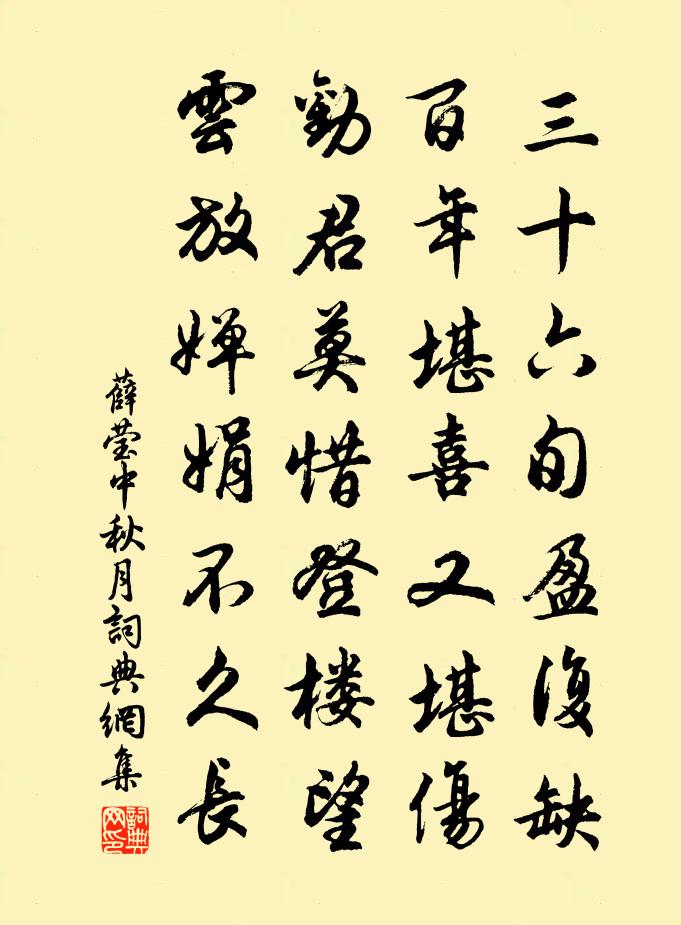 三十六旬盈復缺
百年堪喜又堪傷
勸君莫惜登楼望
雲放嬋娟不久長
薛莹中秋月詞典網集
詞典
网印